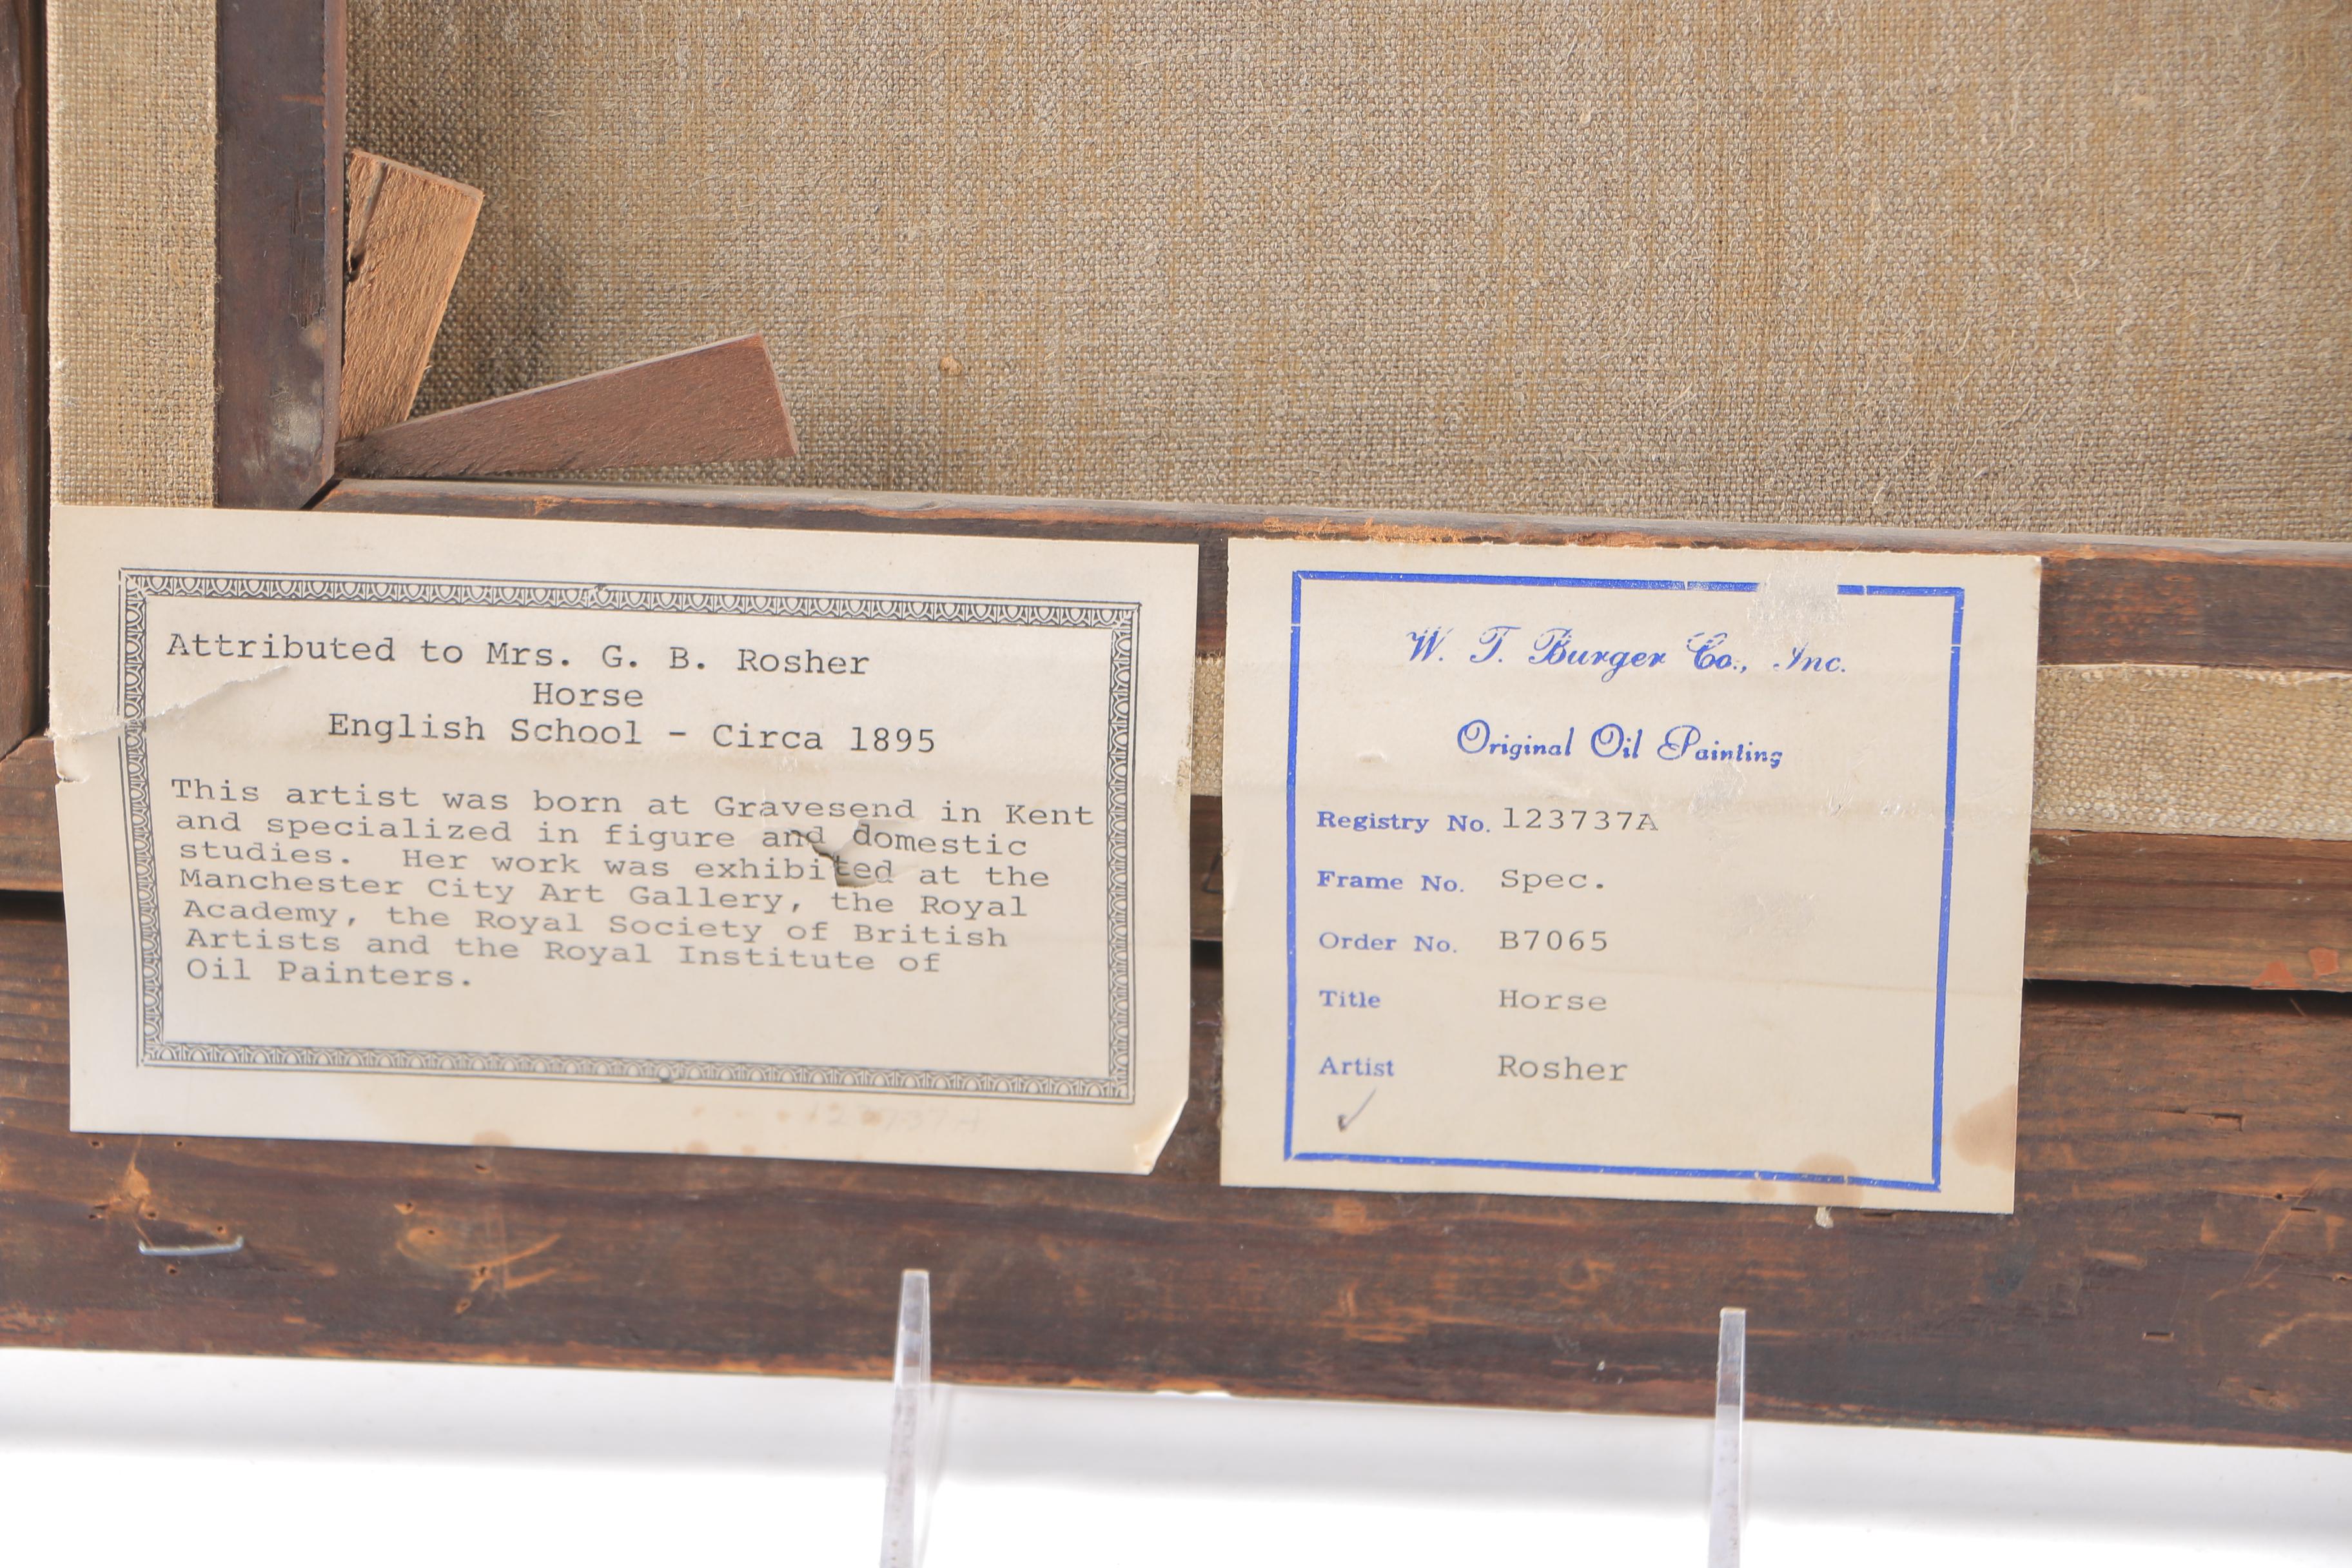 Attributed to Mrs. G. B. Rosher
Horse
English School - Circa 1895
This artist was born at Gravesend in Kent
and specialized in figure and domestic
studies. Her work was exhibited at the
Manchester City Art Gallery, the Royal
Academy, the Royal Society of British
Artists and the Royal Institute of
Oil Painters.
123737A
W. T. Burger Co., Inc.
Original Oil Painting
Registry No. 123737A
Frame No. Spec.
Order No. B7065
Title Horse
Artist Rosher